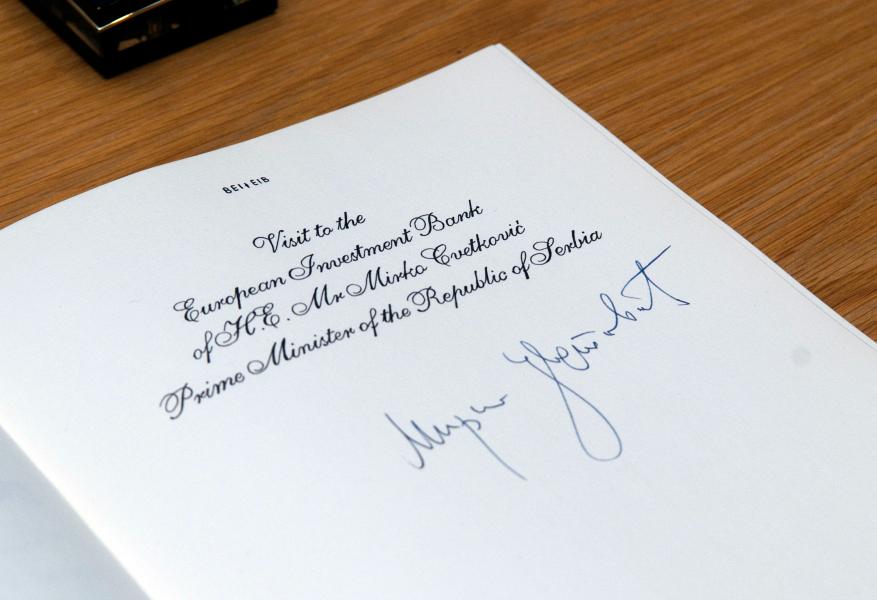 BEI EIB
Visit to the
European Investment Bank
of H.E. Mr Mirko Cvetković
Prime Minister of the Republic of Serbia